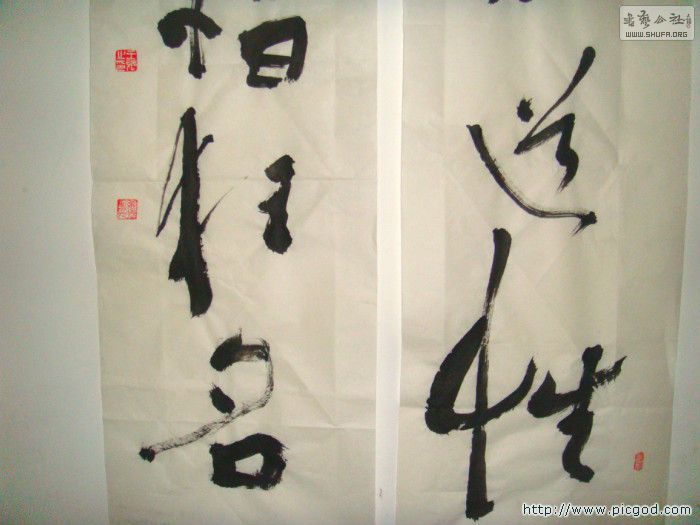 書藝公社
WWW.SHUFA.ORG
道性
狂名
http://www.picgod.com